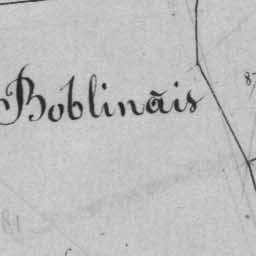 Boblinãis
81